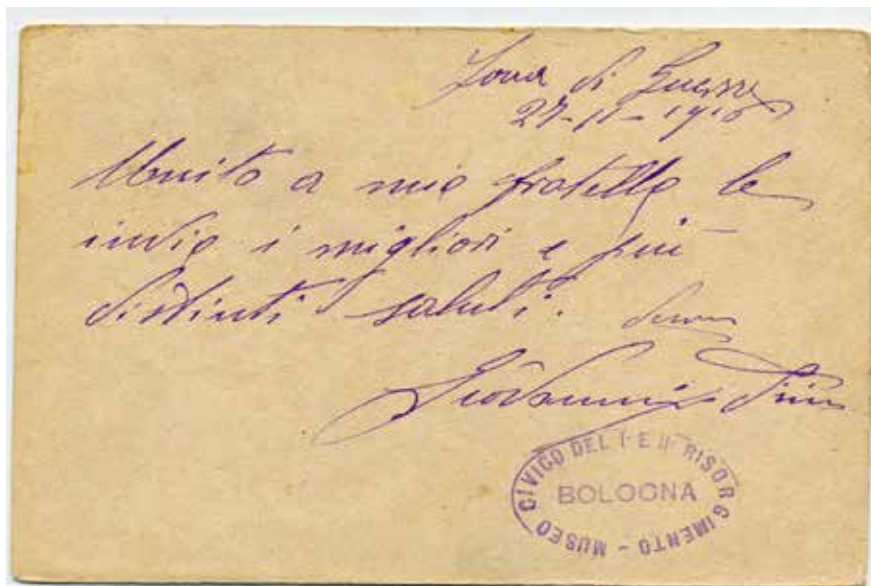 Zona di Guerra
27-11-1916
Unito a mio fratello le
invio i migliori e più
distinti saluti.
Giovanni
MUSEO CIVICO DEL I° E II° RISORGIMENTO -
BOLOGNA